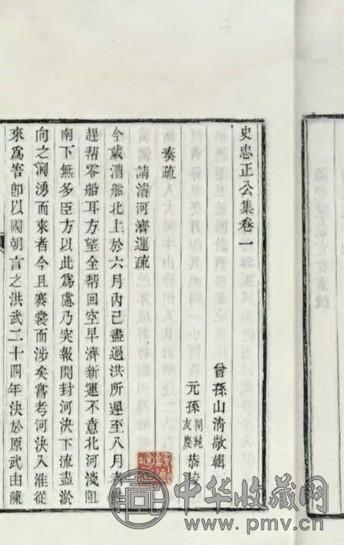 史忠正公集卷一
曾孫山清敬輯
元孫開純友慶恭
奏疏
請濬河濟運疏
今歲漕船北上於六月內已盡過洪所遲至八月
趕幫零船耳方望全幫回空早濟新運不意北河淺阻
南下無多臣方以此為慮乃突報開封河決下流盡淤
向之洶湧而來者今且褰裳而涉矣嘗考河決入淮從
來為害卽以國朝言之洪武二十四年決於原武由陳
中华收藏网
www.pmv.cn